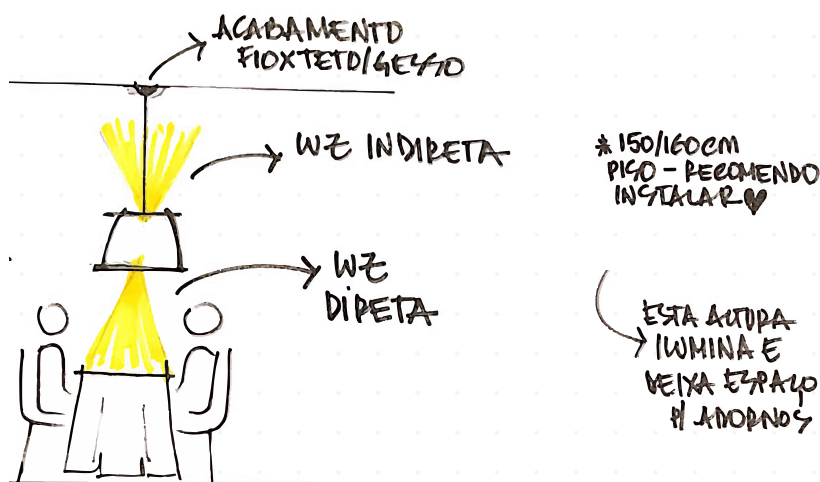 ACABAMENTO
FIOXTETO/GESSO
LUZ INDIRETA
* 150/160CM
PISO - RECOMENDO
INSTALAR ♥
LUZ
DIRETA
ESTA ALTURA
ILUMINA E
DEIXA ESPAÇO
P/ ADORNOS